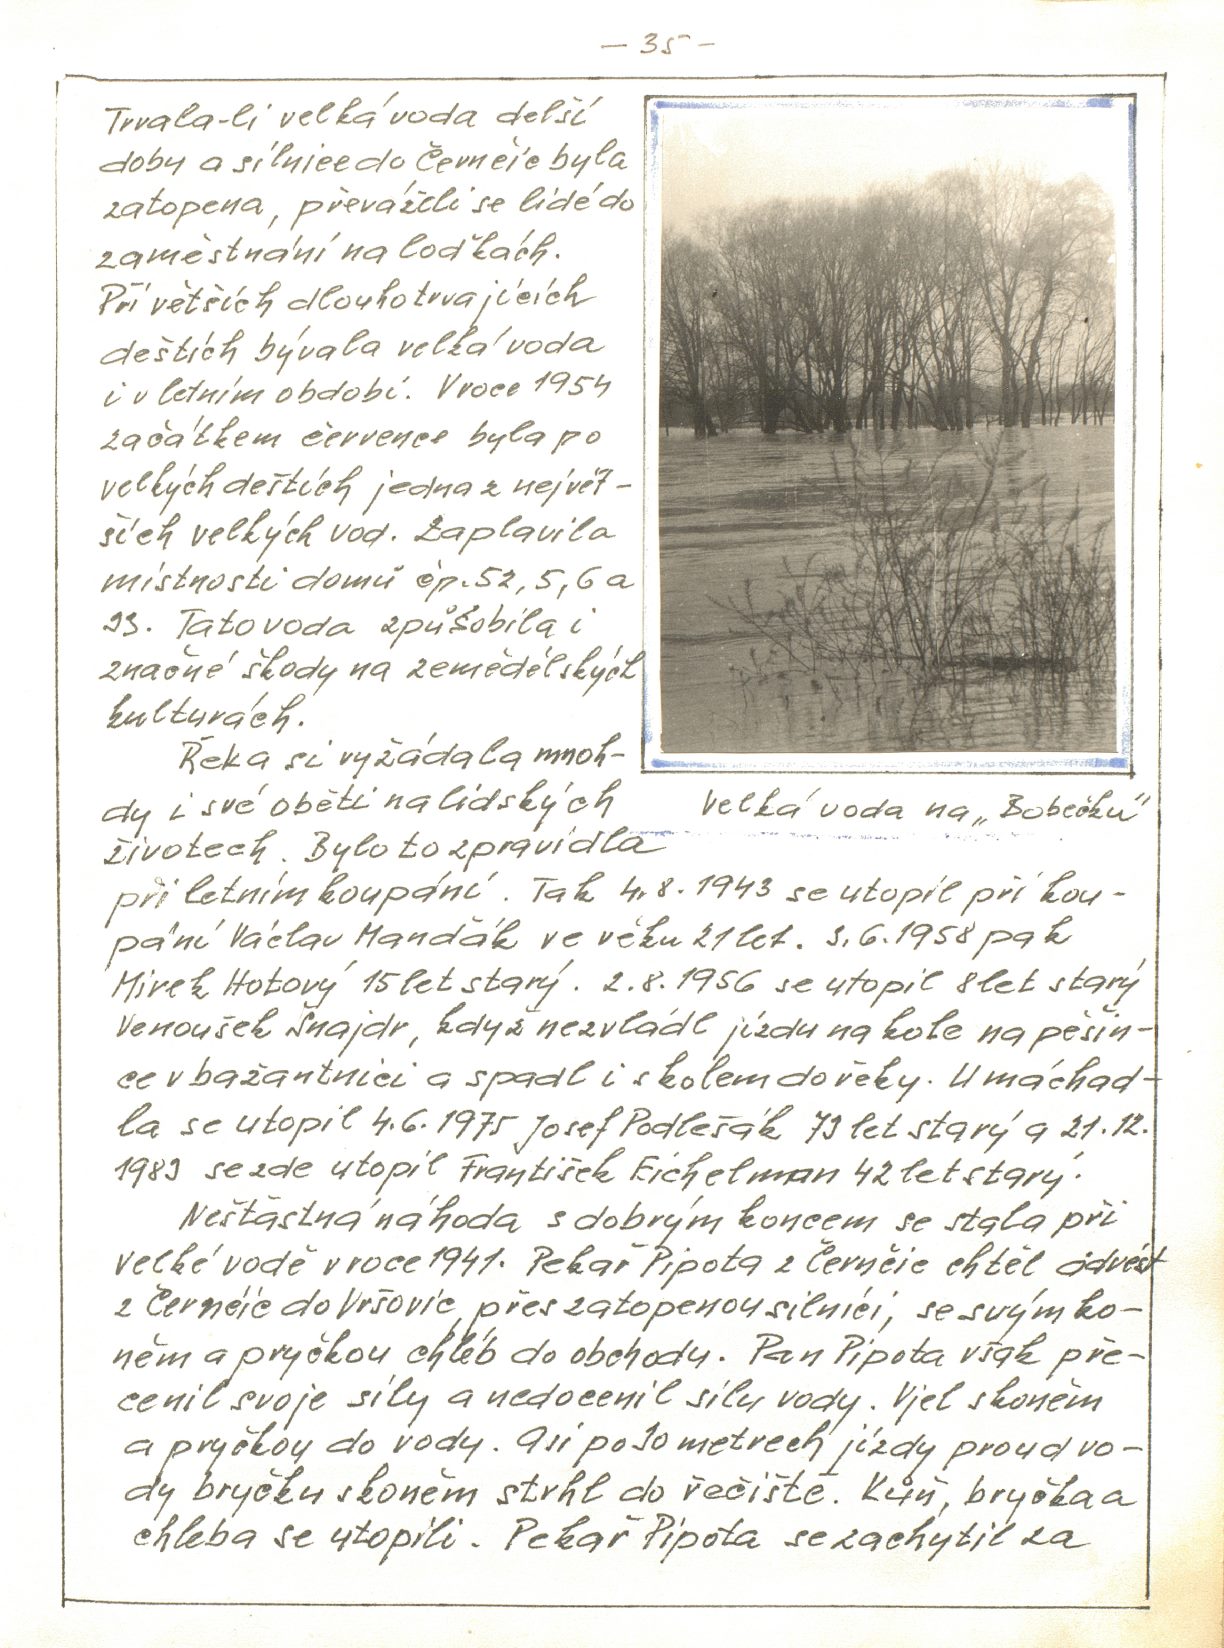 — 35 —
Trvala-li velká voda delší
doby a silnice do Černčic byla
zatopena, převáželi se lidé do
zaměstnání na loďkách.
Při větších dlouhotrvajících
deštích bývala velká voda
i v letním období. V roce 1954
začátkem července byla po
velkých deštích jedna z největ-
ších velkých vod. Zaplavila
místnosti domů čp. 52, 5, 6 a
33. Tato voda způšobila i
značné škody na zemědělských
kulturách.
Řeka si vyžádala mnoh-
dy i své oběti na lidských
Velká voda na „Bobečku"
životech. Bylo to zpravidla
při letním koupání. Tak 4.8.1943 se utopil při kou-
pání Václav Mandžák ve věku 21 let. 3.6.1958 pak
Mirek Hotový 15 let starý. 2.8.1956 se utopil 8 let starý
Venoušek Šnajdr, když nezvládl jízdu na kole na pěšin-
ce v bažantnici a spadl i s kolem do řeky. U máchad-
la se utopil 4.6.1975 Josef Podlešák 73 let starý a 21.12.
1983 se zde utopil František Eichelman 42 let starý.
Nešťastná náhoda s dobrým koncem se stala při
velké vodě v roce 1941. Pekař Pipota z Černčic chtěl odvést
z Černčic do Vršovic, přes zatopenou silnici, se svým ko-
něm a pryčkou chléb do obchodu. Pan Pipota však pře-
cenil svoje síly a nedocenil sílu vody. Vjel s koněm
a pryčkou do vody. Asi po 50 metrech jízdy proud vo-
dy bryčku s koněm strhl do řečiště. Kůň, bryčka a
chleba se utopili. Pekař Pipota se zachytil za